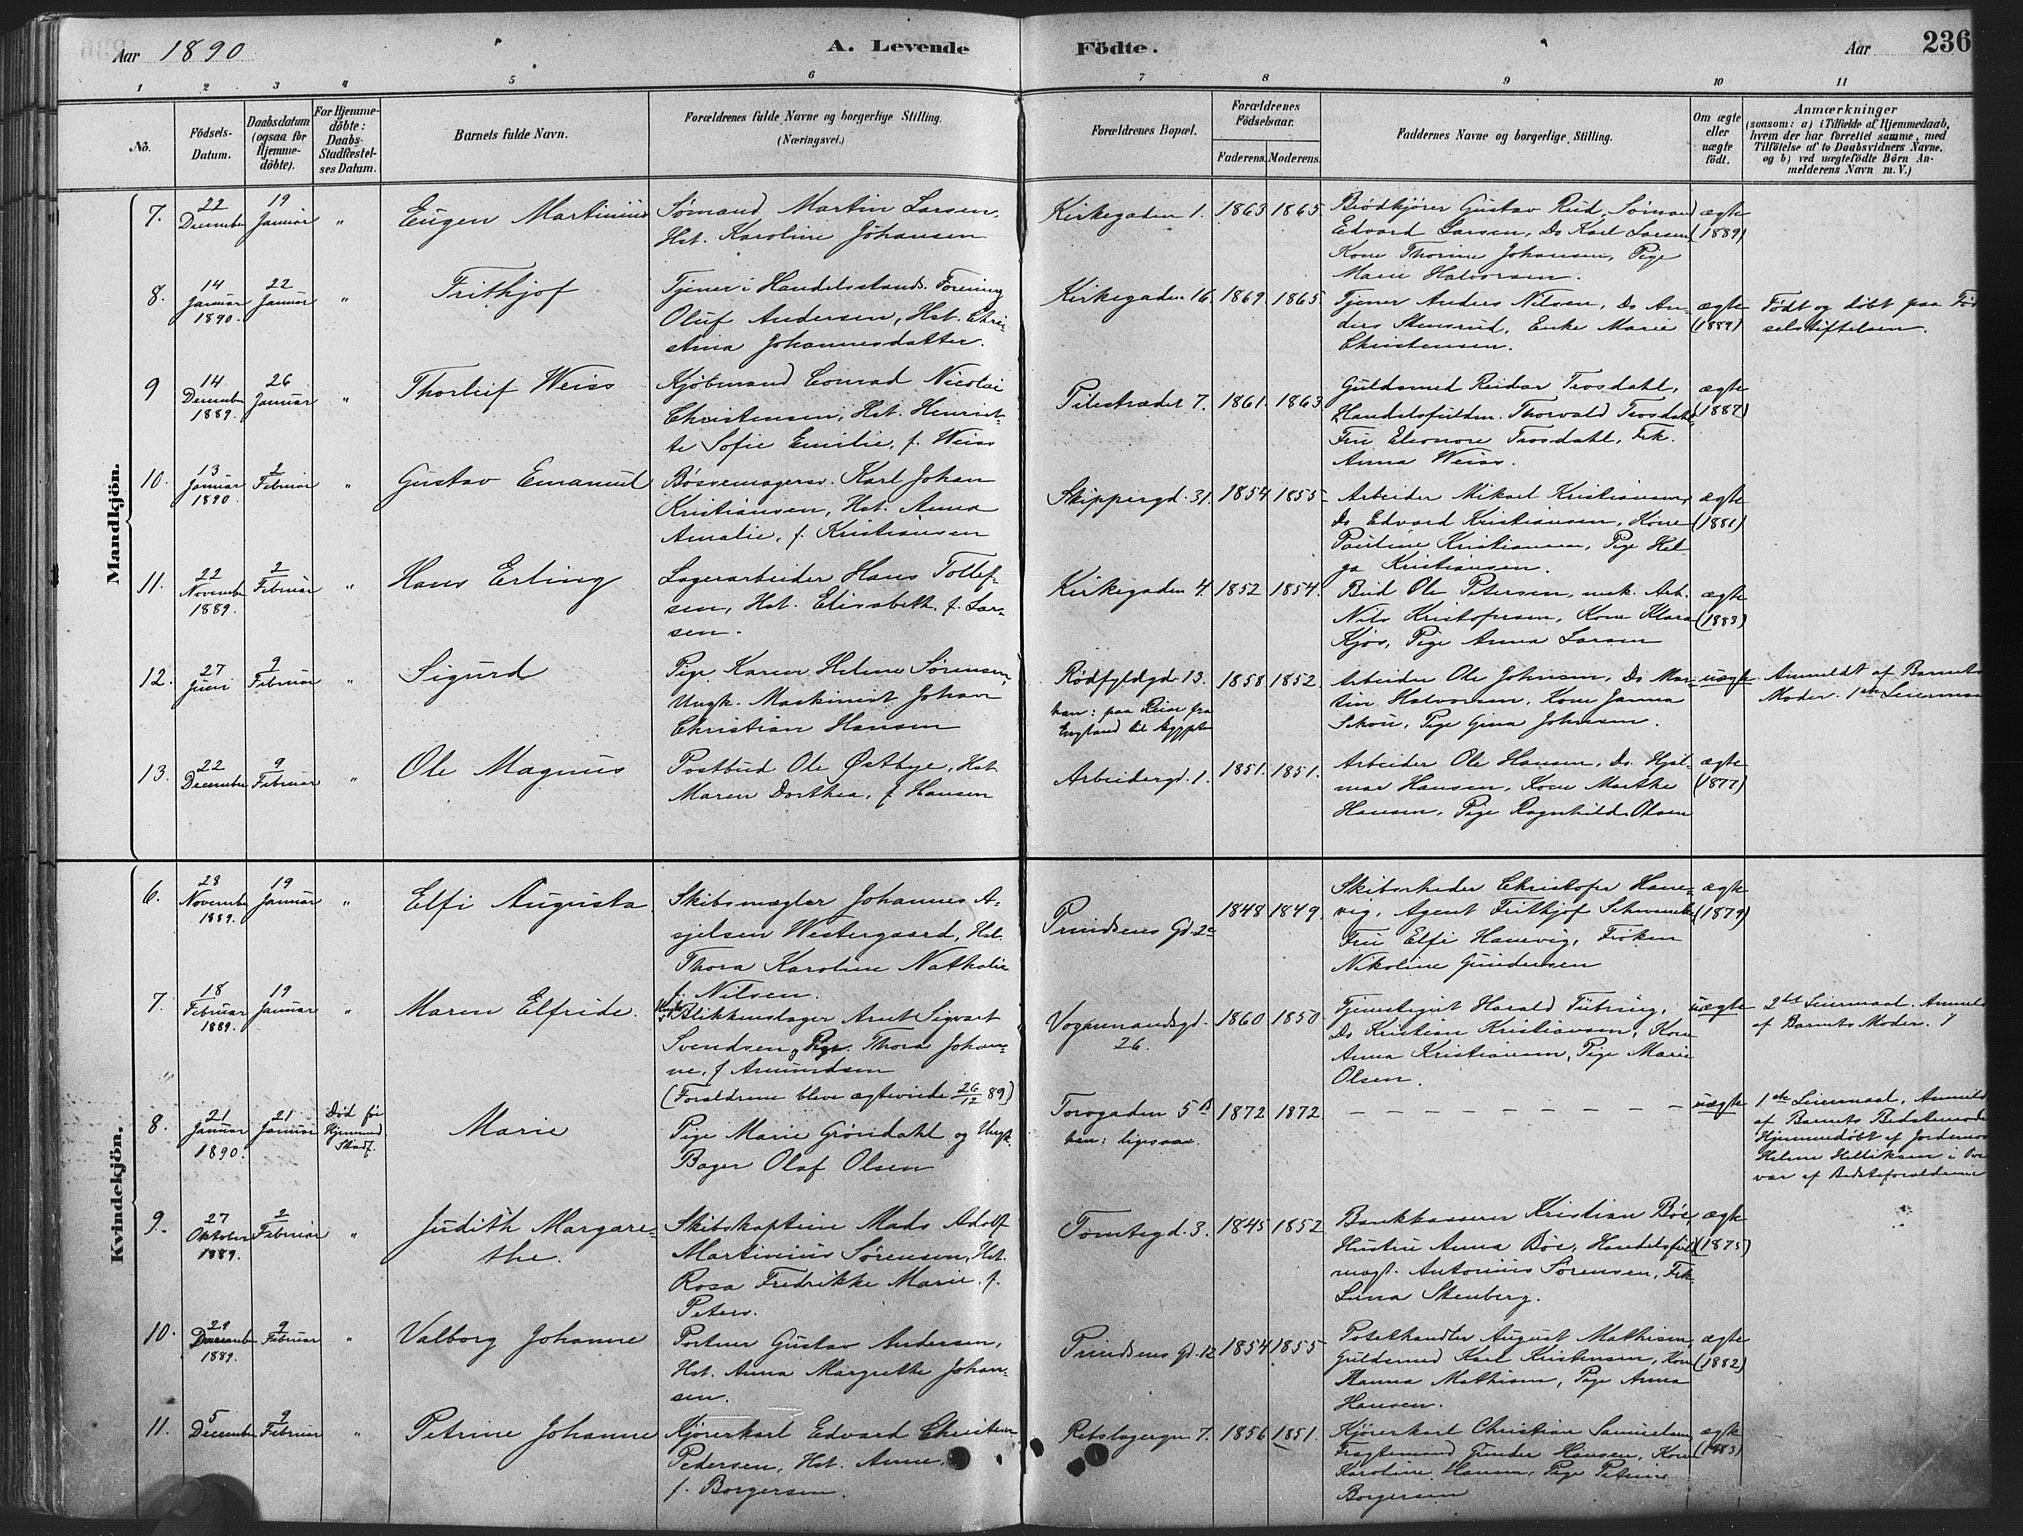 Aar 1890
A. Levende Födte.
Aar
236
1 2 3 4 5 6 7 8 9 10 11
No.
Födsels-Datum.
Daabsdatum (ogsaa for Hjemme-döbte).
For Hjemme-döbte: Daabs-Stadfæstel-ses Datum.
Barnets fulde Navn.
Forældrenes fulde Navne og borgerlige Stilling.
(Næringsvei.)
Forældrenes Bopæl.
Forældrenes Födselsaar.
Faderens. Moderens.
Faddernes Navne og borgerlige Stilling.
Om ægte eller uægte födt.
Anmærkninger
(saasom: a) i Tilfælde af Hjemmedaab, hvem der har forrettet samme, med Tilföielse af to Daabsvidners Navne. og b) ved uægtefödte Börn An-melderens Navn m. V.)
Mandkjön.
7. 22 December 19 Januar " Eugen Martinius Sømand Martin Larsen, Kirkegaden 1. 1863 1865. Brødkjører Gustav Rud, Sømand ægte
Hst. Karoline Johansen Edvard Larsen, Do Karl Larsen (1889)
Kone Thorine Johansen, Pige
Marie Halvorsen.
8. 14 Januar 1890. 22 Januar " Frithjof Tjener i Handelsstands Forening Kirkegaden 16. 1869. 1865. Tjener Anders Nilsen, Do An- ægte Født og døbt paa Fød
Oluf Andersen, Hst. Chri- ders Stensrud, Enke Marie (1889) selsstiftelsen.
stina Johannesdatter. Christensen.
9 14 December 1889. 26 Januar " Thorleif Weiss Kjøbmand Conrad Nicolai Pilestrædet 7. 1861. 1863 Guldsmed Reidar Trosdahl, ægte
Christensen, Hst. Henriet- Handelsfuldm. Thorvald Trosdahl, (1887)
te Sofie Emilie, f. Weiss Fru Eleonore Trosdahl, Frk.
Anna Weiss.
10. 13 Januar 1890 2 Februar " Gustav Emanuel Bøssemagersv. Karl Johan Skippergd. 31. 1854 1855 Arbeider Mikael Kristiansen, ægte
Kristiansen, Hst. Anna Do Edvard Kristiansen, Kone (1881)
Amalie, f. Kristiansen Pauline Kristiansen, Pige Hel
ga Kristiansen.
11. 22 November 1889. 2 Februar " Hans Erling Lagerarbeider Hans Tollef- Kirkegaden 4. 1852 1854. Bud Ole Petersen, mek. Arb. ægte
sen, Hst. Elisabeth, f. Lar- Nils Kristofersen, Kone Klara (1883)
sen. Kjøs, Pige Anna Larsen
12. 27 Juni 9 Februar " Sigurd Pige Karen Helene Sørensen, Rødfyldgd. 13. 1858 1852. Arbeider Ole Johnsen, Do Mar- uægte. Anmeldt af Barnets
Ungk. Maskinist Johan han: paa Reise fra tin Halvorsen, Kone Janna Moder. 1ste Leiermaal
Christian Hansen England til Ægypten Skou, Pige Gina Johnsen.
13. 22 December 9 Februar " Ole Magnus Postbud Ole Østbye, Hst Arbeidergd. 1. 1851. 1851. Arbeider Ole Hansen, Do Hjal- ægte
Maren Dorthea, f. Hansen mar Hansen, Kone Marthe (1877)
Hansen, Pige Ragnhild Olsen
Kvindekjön.
6. 28 November 1889. 19 Januar " Elfi Augusta Skibsmægler Johannes A- Prindsens Gd. 2 1848 1849. Skibsrheder Christofer Hane- ægte
sjelsen Westergaard, Hst. vig, Agent Frithjof (1879)
Thora Karoline Nathalie Fru Elfi Hanevig, Frøken
f. Nilsen. Nikoline Gundersen
7. 18 Februar 1889. 19 Januar " Maren Elfride. Ungk. Blikkenslager Arnt Sigvart Vognmandsgd. 26. 1860 1850. Tjenestegut Harald uægte 2det Leiermaal. Anmeldt
Svendsen, Pige Thora Johan- Do Kristian Kristiansen, Kone af Barnets Moder.
ne, f. Amundsen Anna Kristiansen, Pige Marie
(Forældrene bleve ægteviede 26/12 89) Olsen.
8. 21 Januar 1890. 21 Januar Død før Hjemmed Stadf. Marie Pige Marie Grøndahl og Ungk. Torvgaden 5 1872 1872 — — — — — — uægte 1ste Leiermaal, Anmeldt
Bager Olaf Olsen han: ligesaa. af Barnets Bedstemoder
Hjemmedøbt af Jordemoder
Helene Helliksen i Over
vær af Bedsteforældrene
9. 27 Oktober 1889. 2 Februar " Judith Margare- Skibskaptein Mads Adolf Tomtegd. 3. 1845 1852 Bankkasserer Kristian Bøe ægte
the. Martinius Sørensen, Hst. Hustru Anna Bøe, Handelsfuld (1875)
Rosa Fredrikke Marie, f. mægt. Antonius Sørensen, Frk
Peters. Luna Stenberg.
10. 29 December 1889. 9 Februar " Valborg Johanne Portner Gustav Andersen, Prindsens Gd. 12 1854 1855 August Mathisen, ægte
Hst. Anna Margrethe Johan- Guldsmed Karl Kristensen, Kone (1882)
sen. Hanna Mathisen, Pige Anna
Hansen.
11. 5 December 9 Februar " Petrine Johanne Kjørerkarl Edvard Christian Rebslagergn. 7. 1856 1851. Kjørerkarl Christian Samuelsen, ægte
Pedersen, Hst. Anne, Fragtemand Gunder Hansen, Kone (1883)
f. Borgersen. Karoline Hansen, Pige Petrine
Borgersen